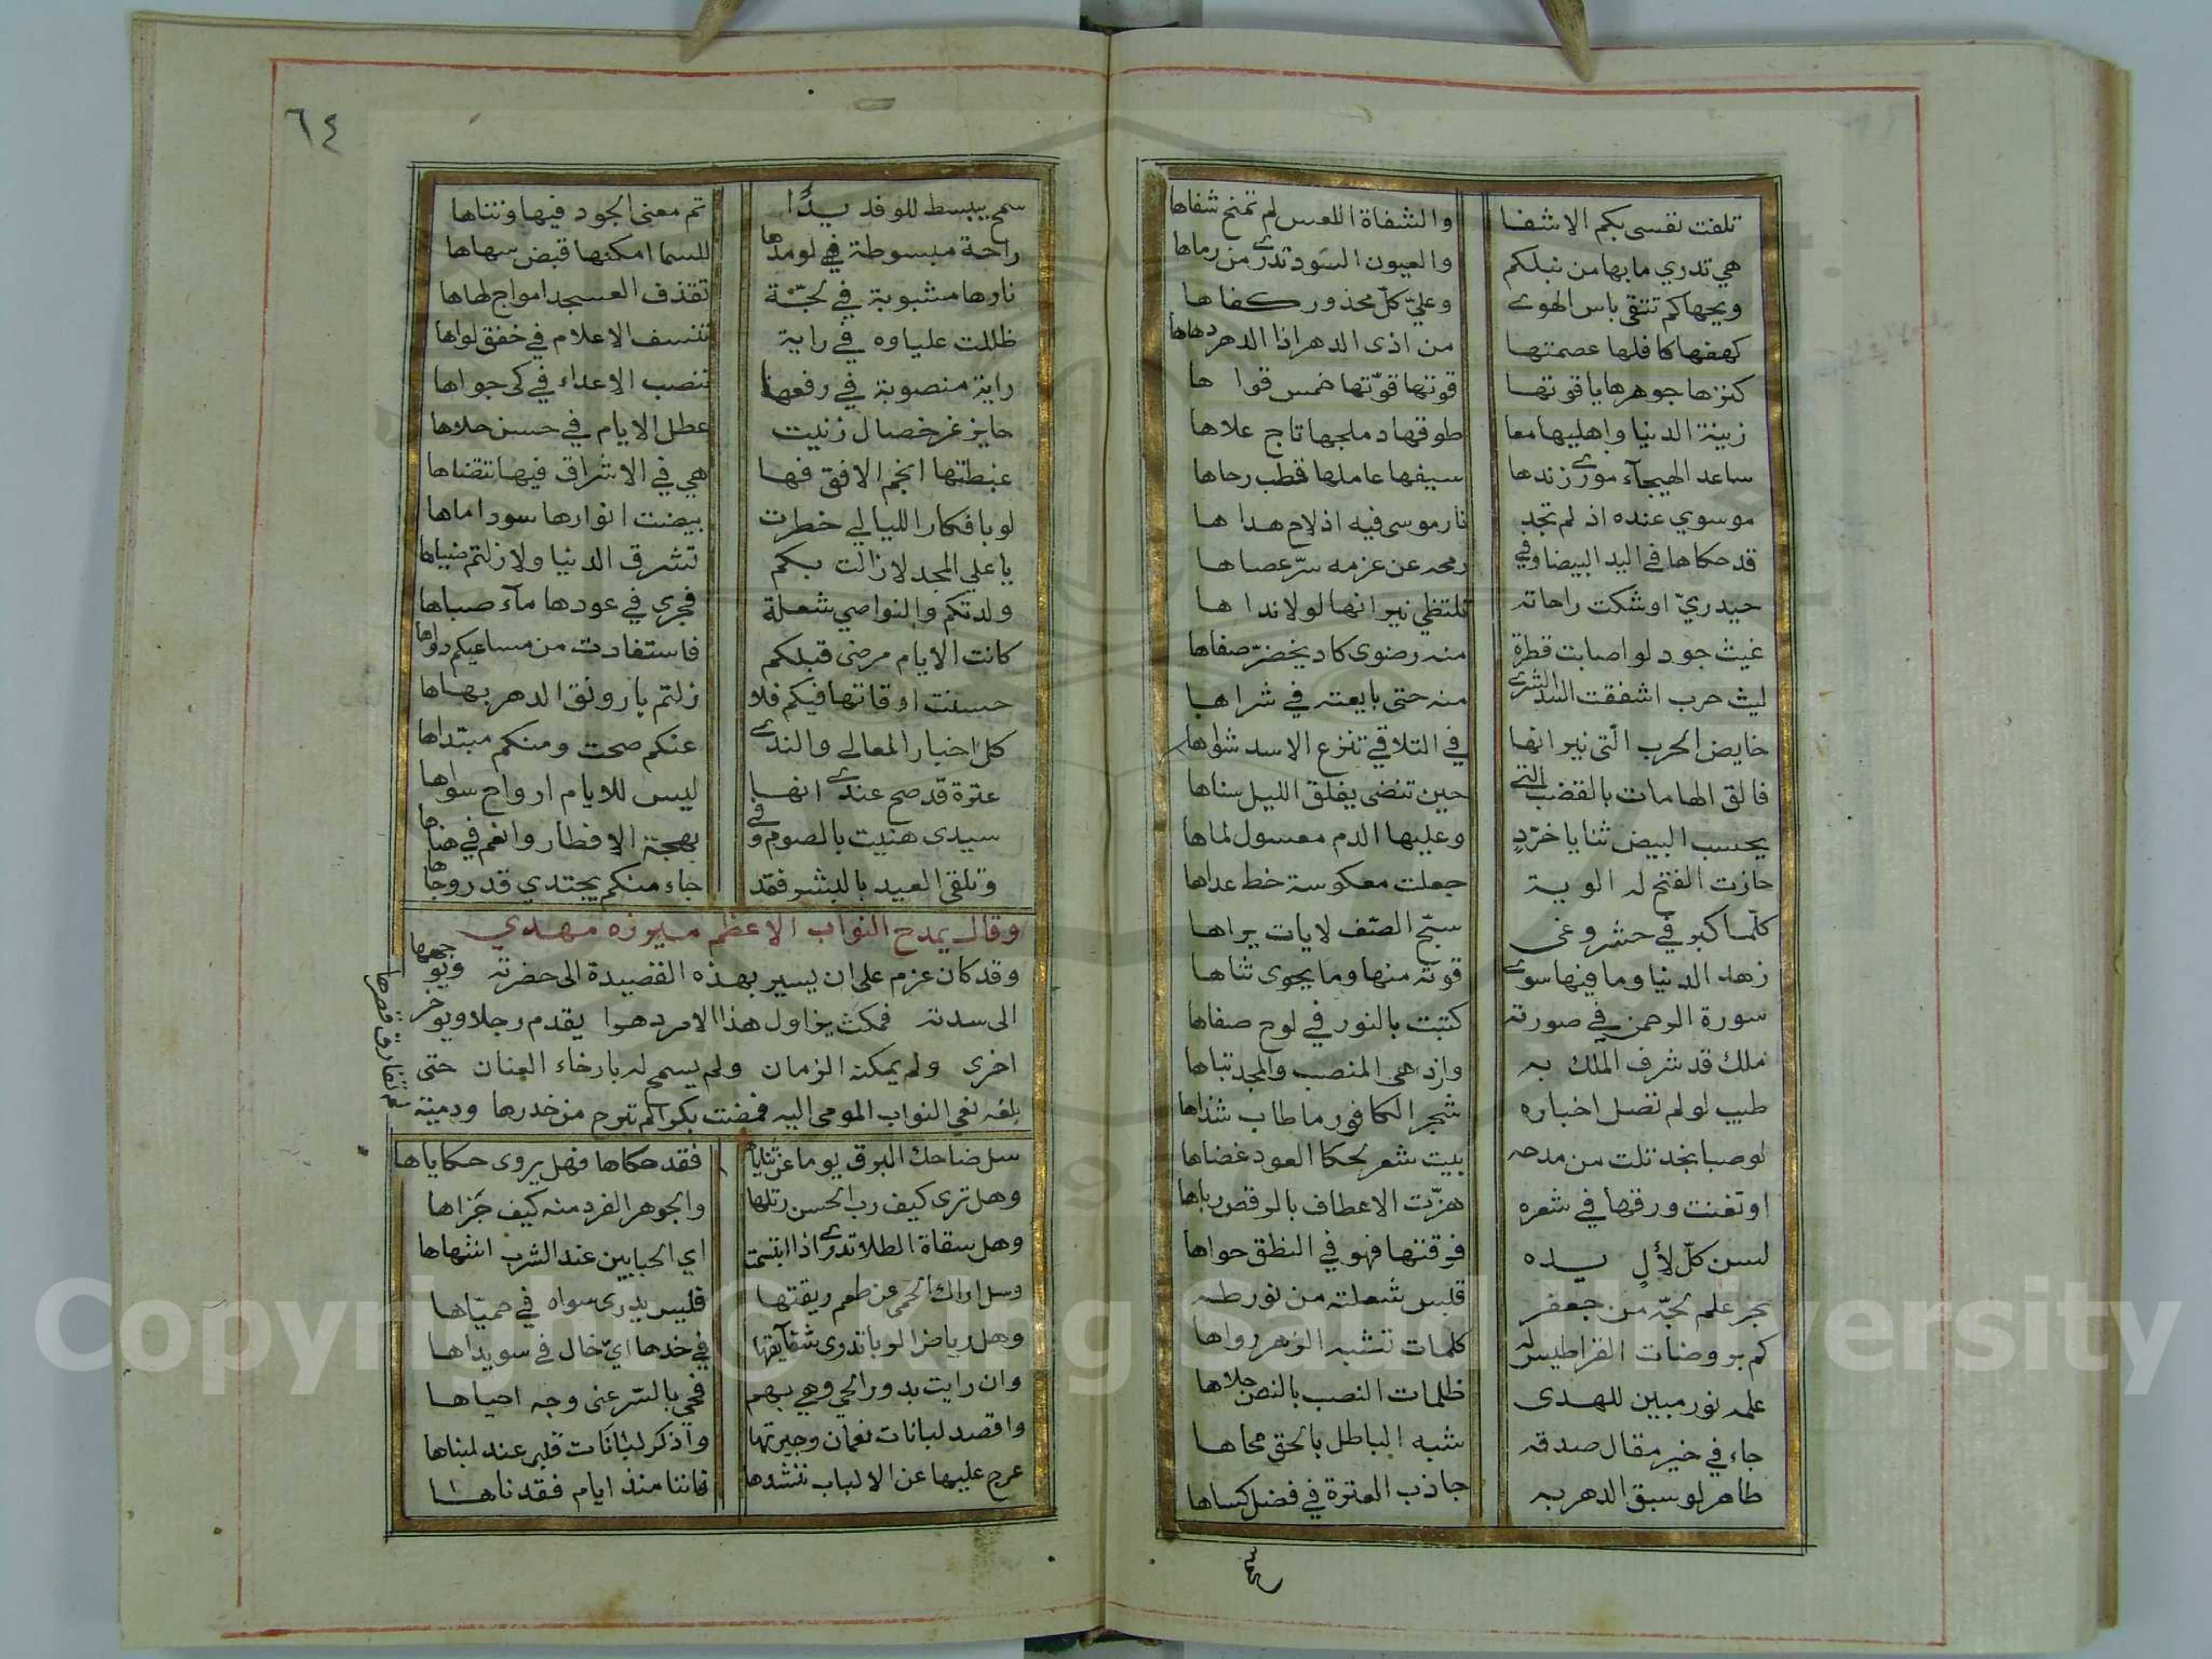 تلفت نفسى بكم الا شفا والشفاة اللعس لم تمنح شفاها
هي تدري ما بها من نبلكم والعيون السود تدرى من رماها
ويحها كم تتقى باس الهوى وعليّ كلّ محذور كفاها
كهفها كافلها عصمتها من اذى الدهر اذا الدهر دهاها
كنزها جوهرها ياقوتها قوتها قوّتها خمس قواها
زينة الدنيا واهليها معا طوقها دملجها تاج علاها
ساعد الهيجآء مورى زندها سيفها عاملها قطب رحاها
موسوي عنده اذ لم تجد نار موسى فيه اذ لاح هداها
قد حكاها في اليد البيضا وفي رمحه عن عزمه سرّ عصاها
حيدريّ اوشكت راحاته تلتظي نيرانها لولا نداها
غيث جود لو اصابت قطرة منه رضوى كاد يخضرّ صفاها
ليث حرب اشفقت اسد الشرى منه حتى بايعته في شراها
خايض الحرب الّتى نيرانها في التلاقي تنزع الاسد شواها
فالق الهامات بالقضب التي حين تنضى يفلق الليل سناها
يحسب البيض ثنايا خرّدٍ وعليها الدم معسول لماها
حازت الفتح له الوية جعلت معكوسة خط عداها
كلّما كبر في حشر وغى سبّح الصّف لايات يراها
زهد الدنيا وما فيها سوى قوته منها وما يحوى ثناها
سورة الرحمن في صورته كتبت بالنور في لوح صفاها
ملك قد شرف الملك به وازدهى المنصب والمجد تباها
طيب لو لم تصل اخباره شجر الكافور ما طاب شذاها
لو صبا نجد تلت من مدحه بيت شعر لحكا العود غضاها
او تغنت ورقها في شعره هزّت الاعطاف بالرقص رباها
لسن كلّ لأل يده فرقتها فهو في النطق حواها
بحر علم لجّه من جعفر قلبس شعلته من نور طه
كم بروضات القراطيس له كلمات تشبه الزهر رواها
علمه نور مبين للهدى ظلمات النصب بالنص جلاها
جاء في خير مقال صدقه شبه الباطل بالحق محاها
طاهر لو سبق الدهر به جاذب العترة في فضل كساها
سمح
٦٤
سمح يبسط للوفد يدًا تم معنى الجود فيها وتناها
راحة مبسوطة في لو مدها للسما امكنها قبض سهاها
نارها مشبوبة في لجّة تقذف العسجد امواج لهاها
ظللت علياوه في راية تنسف الاعلام في خفق لواها
راية منصوبة في رفعها تنصب الاعداء في كى جواها
حايز غر خصال زينت عطل الايام في حسن حلاها
غبطتها انجم الافق فها هي في الاشراق فيها تتضاها
لو بافكار الليالي خطرت بيضت انوارها سود اماها
يا علي المجد لا زالت بكم تشرق الدنيا ولا زلتم ضياها
ولدتكم والنواصي شعلة فجرى في عودها مآء صباها
كانت الايام مرضى قبلكم فاستفادت من مساعيكم دواها
حسنت اوقاتها فيكم فلا زلتم يا رونق الدهر بهاها
كل اخبار المعالي والندى عنكم صحت ومنكم مبتداها
عترة قد صح عندى انها ليس للايام ارواح سواها
سيدى هنيت بالصوم وفي بهجة الافطار وانعم في هناها
وتلقى العيد بالبشر فقد جاء منكم يجتدي قدر وجاها
وقال يمدح النواب الاعظم ميرزه مهدي
وقد كان عزم على ان يسير بهذه القصيدة الى حضرته ويوجهها
الى سدته فمكث يزاول هذا الامر دهرا يقدم رجلا ويوخر
اخرى ولم يمكنه الزمان ولم يسمح له بارخاء العنان حتى
بلغه نعي النواب المومى اليه فمضت بكرا لم تبرح من خدرها ودمية
لم تفارق قصرها
سل ضاحك البرق يوما عن ثناياها فقد حكاها فهل يروى حكاياها
وهل ترى كيف رب الحسن رتلها والجوهر الفرد منه كيف جزاها
وهل سقاة الطلا تدرى اذا ابتسمت اي الحبابين عند الشرب اشهاها
وسل اراك الحمى عن طعم ريقتها فليس يدرى سواه في حميّاها
وهل رياض الربا تدرى شقآيقها في خدها ايّ خال في سويداها
وان رايت بدور الحي وهي بهم فحي بالسر عنى وجه احياها
واقصد لبانات نعمان وجيرتها واذكر لبانات قلبى عند لبناها
عرج عليها عن الالباب ننشدها فاننا منذ ايام فقدناها
Copyright © King Saud University